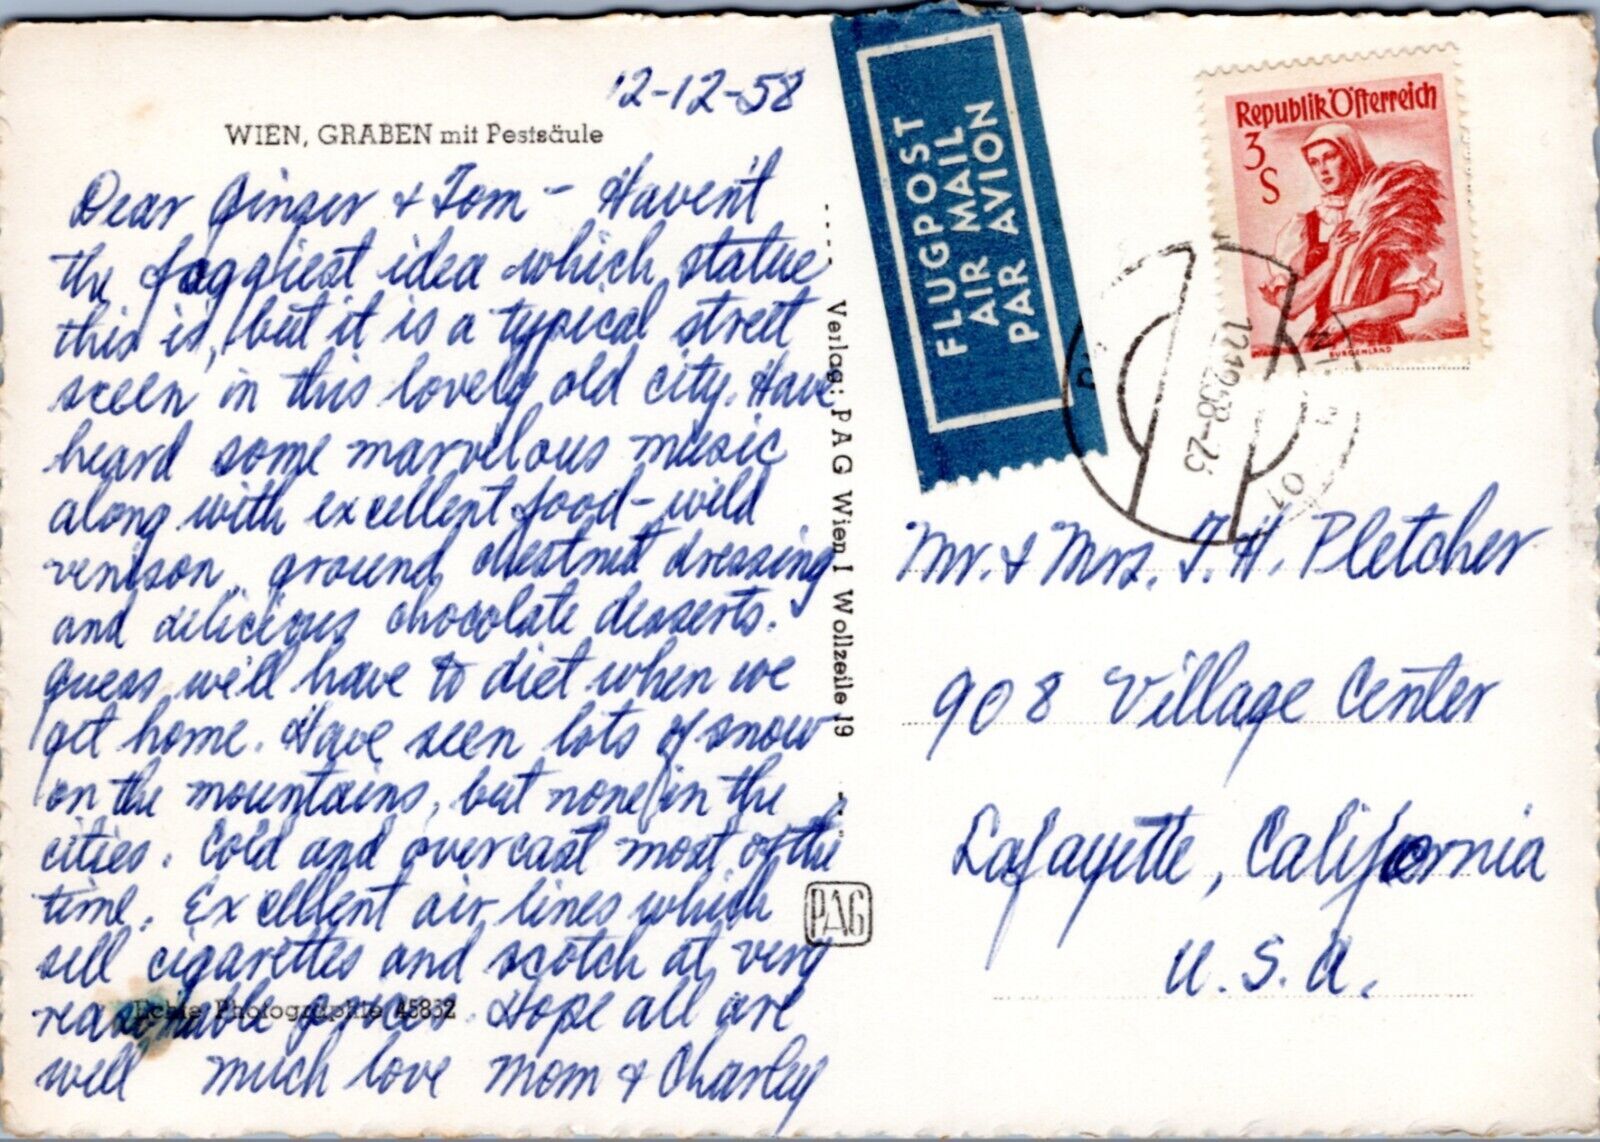 12-12-58
WIEN, GRABEN mit Pestsäule
Dear Ginger & Tom - Haven't
the foggiest idea which statue
this is, but it is a typical street
sceen in this lovely old city. Have
heard some marvelous music
along with excellent food - wild
venison, ground chestnut dressing
and delicious chocolate desserts.
Guess we'll have to diet when we
get home. Have seen lots of snow
on the mountains, but none in the
cities. Cold and overcast most of the
time. Excellent air lines which
sell cigarettes and scotch at very
reasonable prices. Hope all are
well much love Mom & Charley
Echte Photographie 45832
Verlag: PAG Wien I Wollzeile 19
PAG
FLUGPOST
AIR MAIL
PAR AVION
Republik Österreich
3
S
BURGENLAND
Mr. & Mrs. T. H. Pletcher
908 Village Center
Lafayette, California
U.S.A.